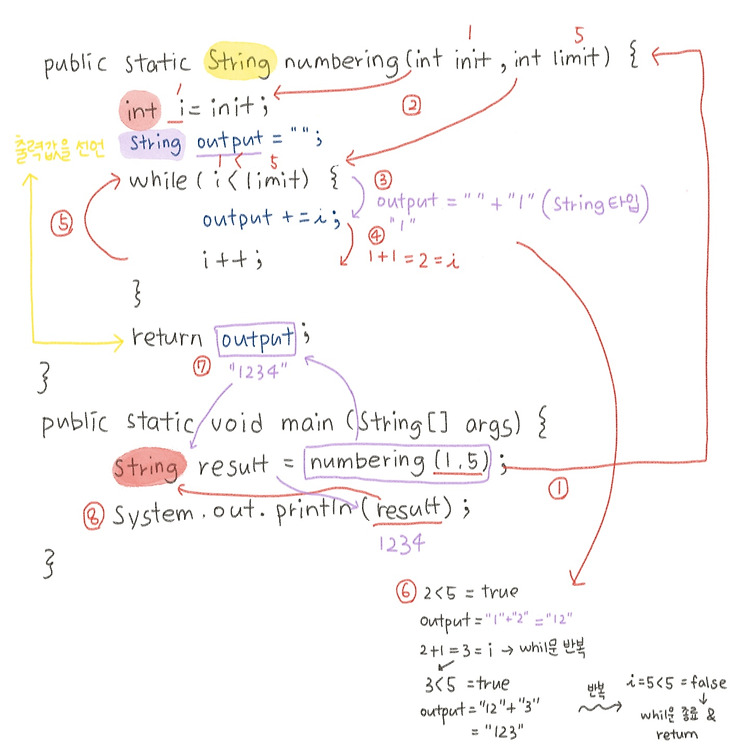 1 5
public static String numbering (int init , int limit) {
1 ②
int i = init ;
출력값을 선언 String output = "" ;
1 < 5
while ( i < limit) { ③
output = "" + "1" (String타입)
⑤ output += i ; "1"
④
i ++ ; 1+1 = 2 = i
}
return output ;
⑦ "1234"
}
public static void main (String[] args) {
String result = numbering (1.5) ;
①
⑧ System.out.println (result) ;
1234
}
⑥ 2<5 = true
output = "1"+"2" = "12"
2+1 = 3 = i → whil문 반복
3<5 = true
output = "12"+"3"
= "123"
반복
i=5<5 = false
whil문 종료 &
return